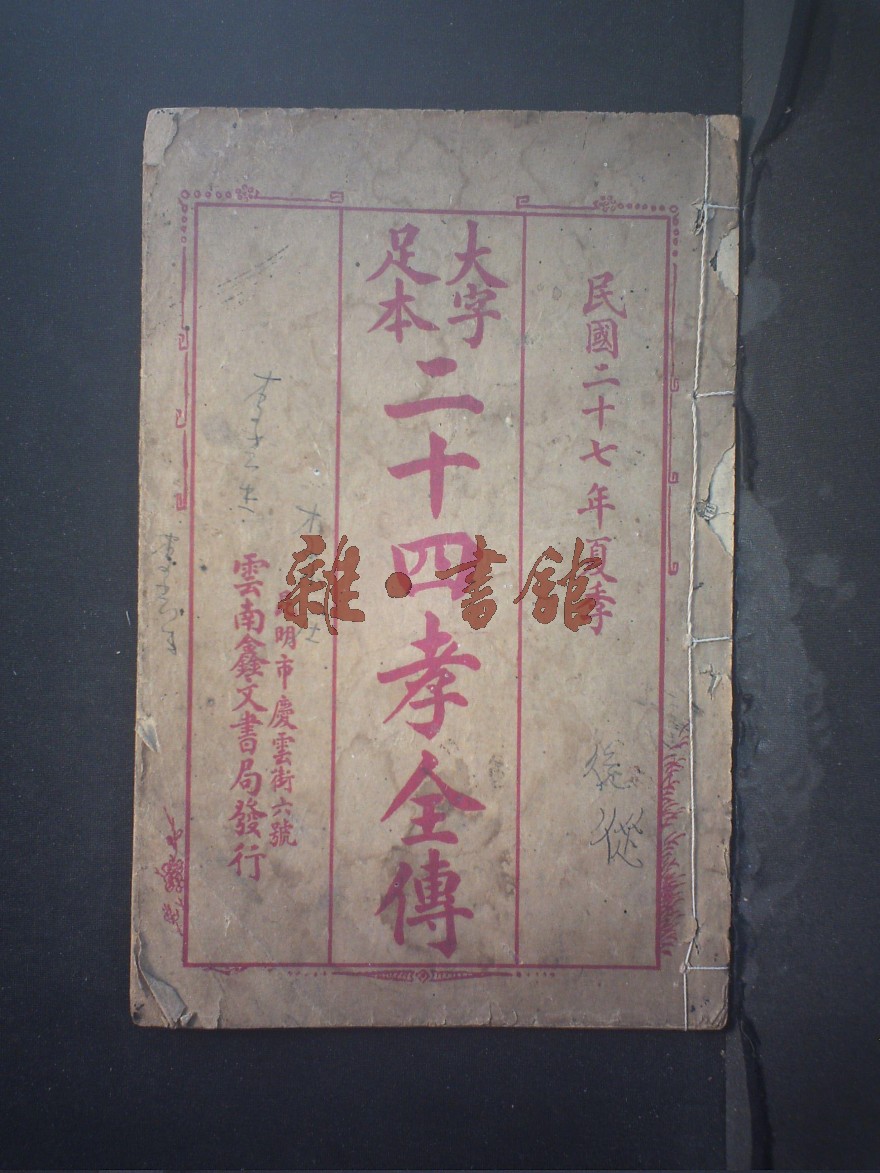 民國二十七年夏季
大字
足本
二十四孝全傳
明市慶雲街六號
雲南鑫文書局發行
雜·書館